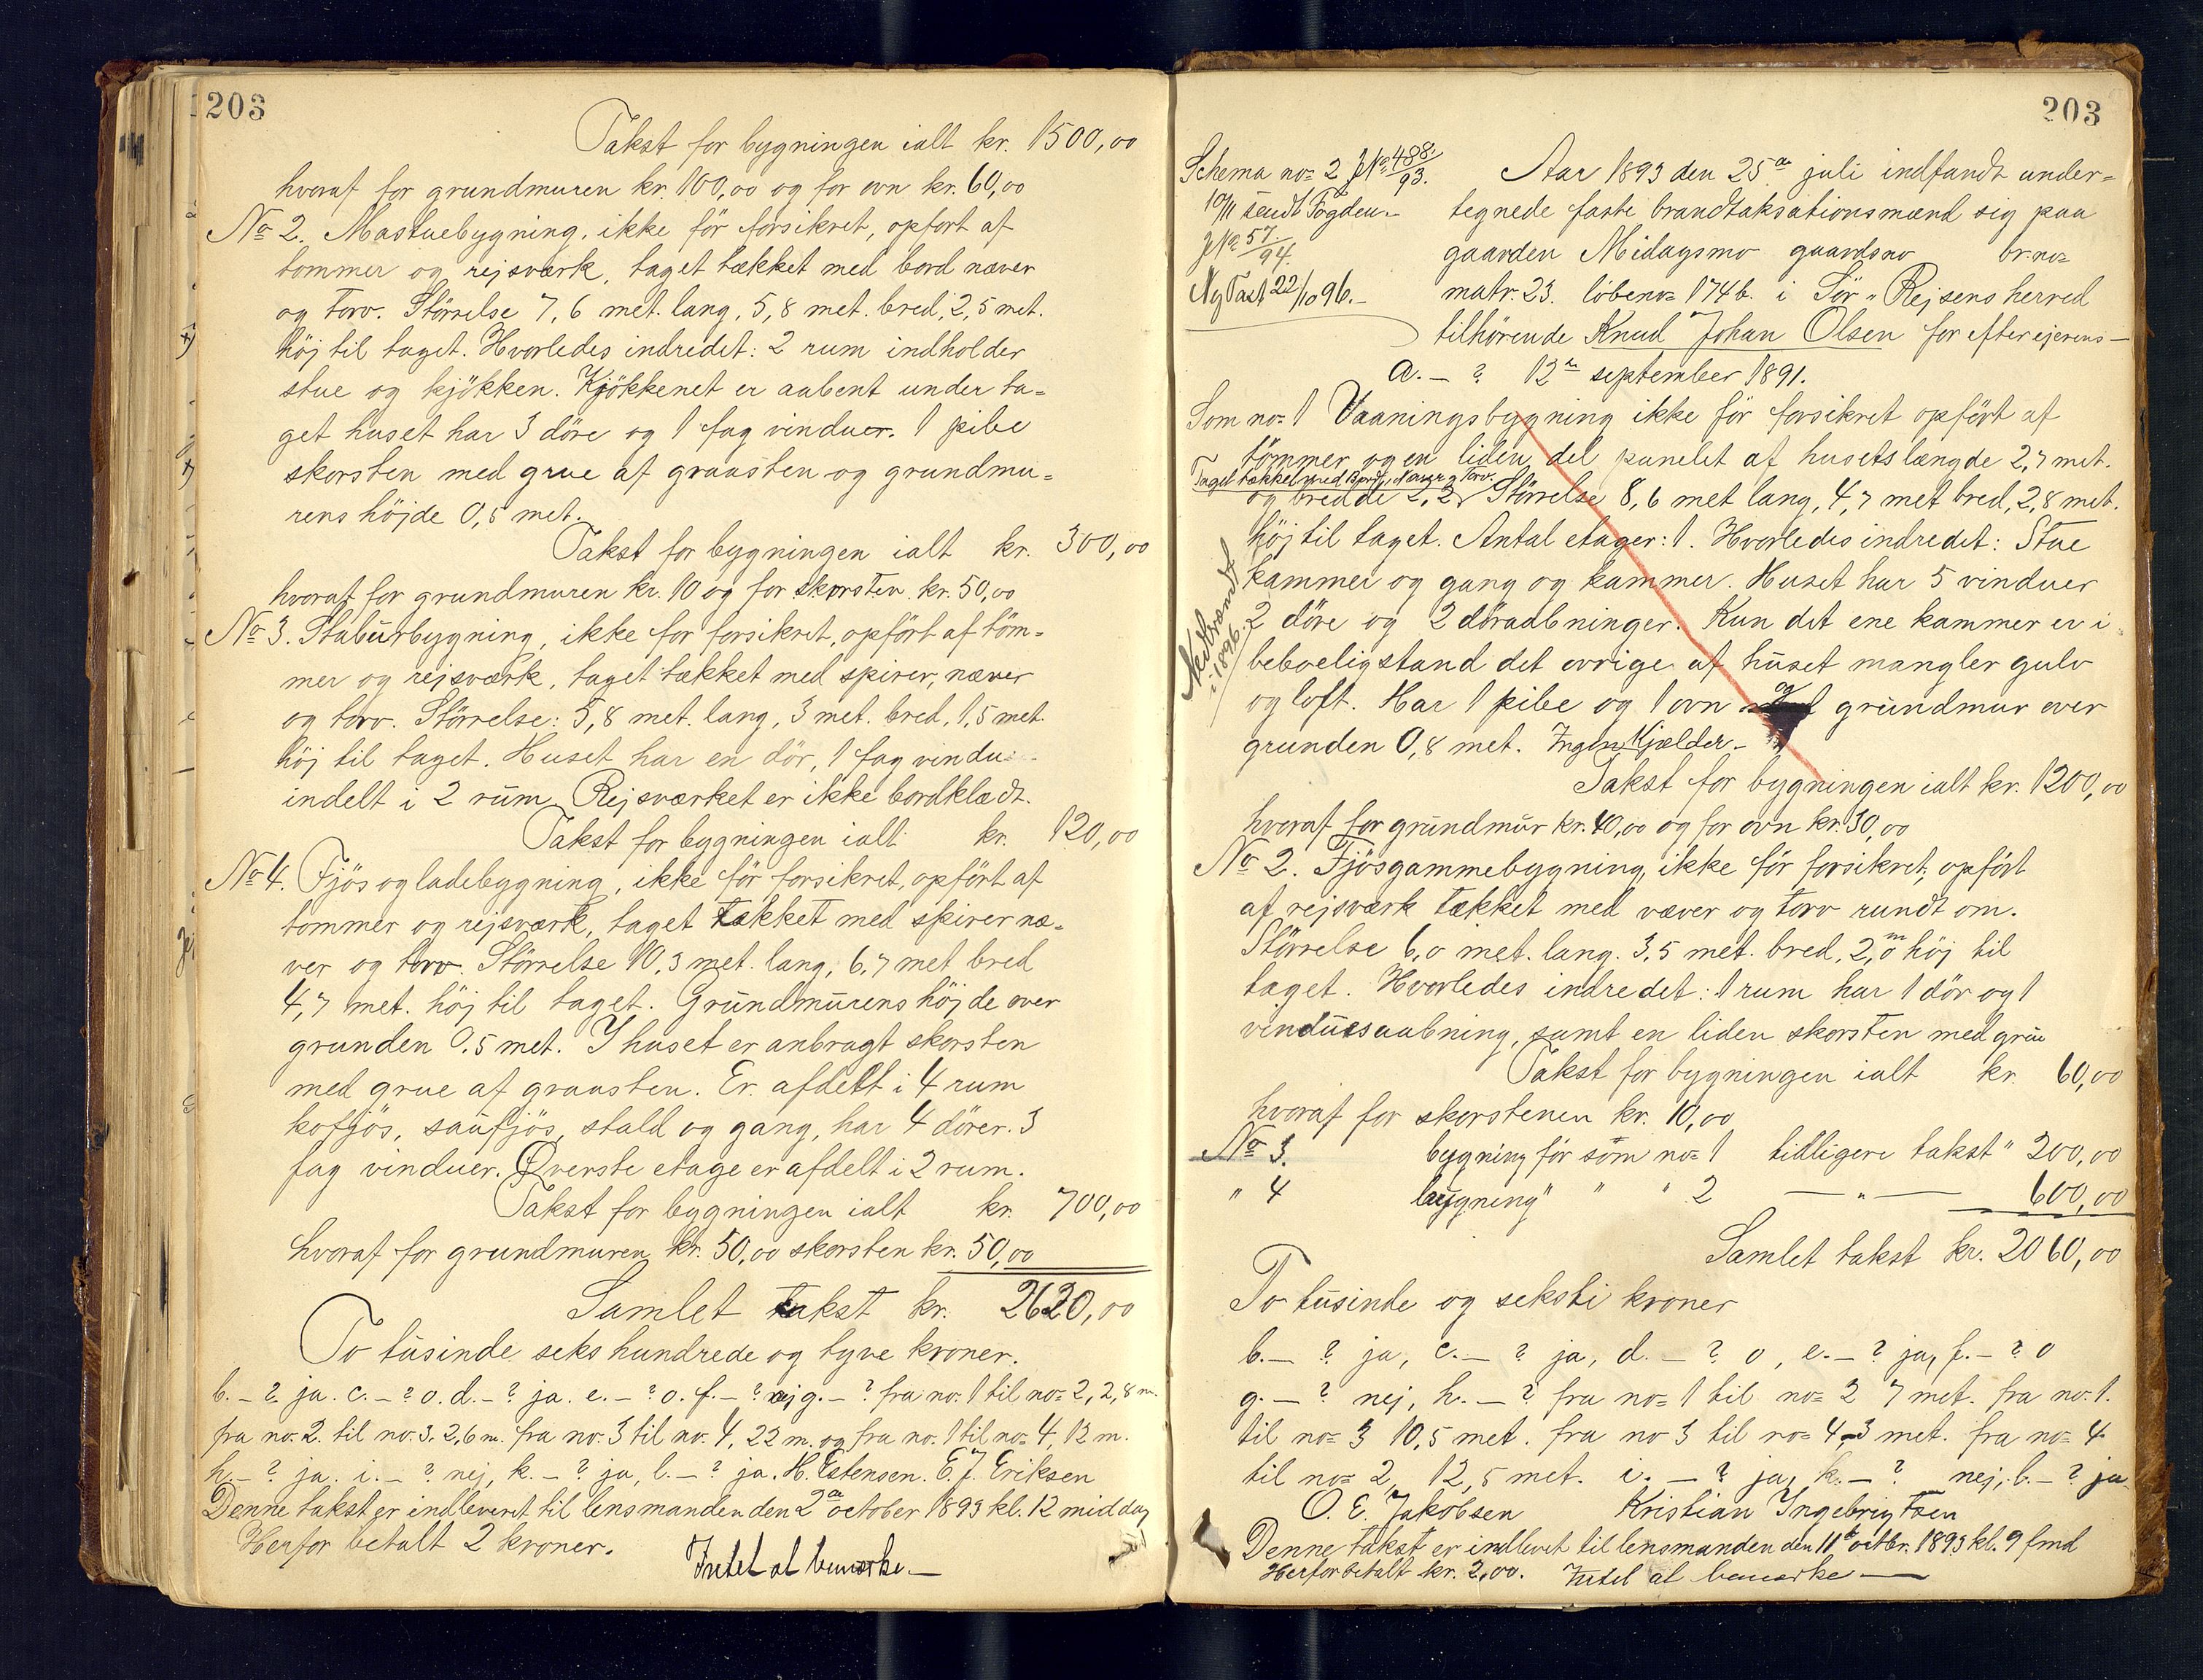 203
Takst for bygningen ialt kr. 1500,00
hvoraf for grundmuren kr. 100,00 og for ovn kr. 60,00
No 2. Mastuebygning, ikke för forsikret, opfort af
tommer og rejsværk, taget tækket med bord næver
og torv. Störrelse 7,6 met. lang, 5,8 met. bred, 2,5 met.
höj til taget. Hvorledes indredet: 2 rum indholder
stue og kjökken. Kjökkenet er aabent under ta-
get huset har 3 döre og 1 fag vinduer. 1 pibe
skorsten med grue af graasten og grundmu-
rens höjde 0,5 met.
Takst for bygningen ialt kr. 300,00
hvoraf for grundmuren kr. 10 og for skorsten kr. 50,00
No 3. Staburbygning, ikke for forsikret, opfört af töm-
mer og rejsværk, taget tækket med spirer, næver
og torv. Störrelse: 5,8 met. lang, 3 met. bred, 1,5 met.
höj til taget. Huset har en dör, 1 fag vindu
indelt i 2 rum. Rejsværket er ikke bordklædt.
Takst for bygningen ialt kr. 120,00
No 4. Fjös og ladebygning, ikke för forsikret, opfört af
tommer og rejsværk, taget tækket med spirer næ-
ver og torv. Störrelse 10,3 met. lang, 6,7 met bred
4,7 met. höj til taget. Grundmurens höjde over
grunden 0.5 met. I huset er anbragt skorsten
med grue af graasten. Er afdelt i 4 rum
kofjös, saufjös, stald og gang, har 4 dörer. 3
fag vinduer. Øverste etage er afdelt i 2 rum.
Takst for bygningen ialt kr. 700,00
hvoraf for grundmuren kr. 50,00 skorsten kr. 50,00
Samlet takst kr. 2620,00
To tusinde seks hundrede og tyve kroner.
b. – ? ja. c. – ? o. d. – ? ja. e. – ? o. f. – ? nej g. – ? fra no. 1 til no= 2, 2,8 m.
fra no. 2. til no. 3. 2,6 m. fra no. 3 til no. 4, 22 m. og fra no. 1 til no= 4, 12 m.
h. – ? ja. i. – ? nej, k. – ? ja, l. – ? ja. H. Estensen. E. J. Eriksen
Denne takst er indleveret til lensmanden den 2den october 1893 kl. 12 middag
Herfor betalt 2 kroner.
Intet at bemærke. —
203
Schema no= 2 J№ 488/93.
19/11 sendt Fogden. –
J№ 57/94.
Ny Taxt 22/10 96. –
Aar 1893 den 25de juli indfandt under-
tegnede faste brandtaksationsmænd sig paa
gaarden Midagsmo gaardsno br.no=
matr. 23. löbeno= 174 b. i Sör-Rejsens herred
tilhörende Knud Johan Olsen for efter ejerens –
a. – ? 12te september 1891.
Som no= 1 Vaaningsbygning ikke för forsikret opfört af
tömmer og en liden del panelet af husets længde 2,7 met.
Taget tækket med Bord, Næver og Torv.
og bredde 2,2. Störrelse 8,6 met lang, 4,7 met bred, 2,8 met.
höj til taget. Antal etager: 1. Hvorledes indredet: Stue
kammer og gang og kammer. Huset har 5 vinduer
2 döre og 2 döraabninger. Kun det ene kammer er i
beboeligstand det ovrige af huset mangler gulv
og loft. Har 1 pibe og 1 ovn og grundmur over
grunden 0,8 met. Ingen Kjælder –
Nedbrændt
i 1896.
Takst for bygningen ialt kr. 1200,00
hvoraf for grundmur kr. 40,00 og for ovn kr. 30,00
No 2. Fjösgammebygning, ikke för forsikret, opfört
af rejsværk tækket med næver og torv rundt om.
Störrelse 6,0 met. lang. 3,5 met. bred, 2,0 m höj til
taget. Hvorledes indredet: 1 rum har 1 dör og 1
vinduesaabning, samt en liden skorsten med grue
Takst for bygningen ialt kr. 60,00
hvoraf for skorstenen kr. 10,00
No 3. bygning för som no= 1 tidligere takst " 200,00
" 4 bygning " " " 2 — " — 600,00
Samlet takst kr. 2060,00
To tusinde og seksti kroner
b. – ? ja, c. – ? ja, d. – ? o, e. – ? ja, f. – ? o
g. – ? nej, h. – ? fra no= 1 til no= 2 7 met. fra no. 1.
til no= 3 10,5 met. fra no 3 til no= 4 3 met. fra no= 4
til no= 2, 12,5 met. i. – ? ja, k. – ? nej, l. – ? ja
O. E. Jakobsen Kristian Ingebrigtsen
Denne takst er indlevet til lensmanden den 11te octbr. 1893 kl. 9 fmd
Herfor betalt kr. 2,00. Intet at bemærke —